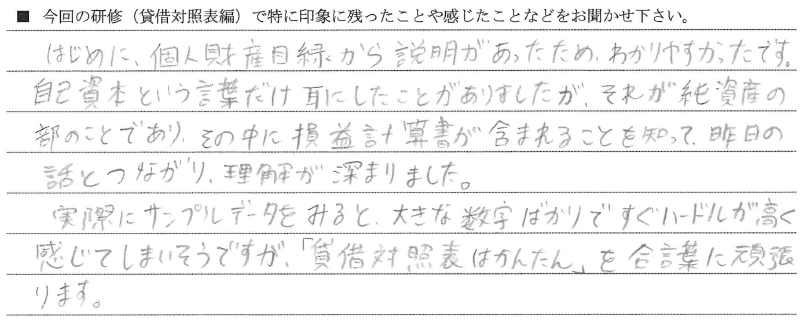 ■ 今回の研修（貸借対照表編）で特に印象に残ったことや感じたことなどをお聞かせ下さい。
はじめに、個人財産目録から説明があったため、わかりやすかったです。
自己資本という言葉だけ耳にしたことがありましたが、それが純資産の
部のことであり、その中に損益計算書が含まれることを知って、昨日の
話とつながり、理解が深まりました。
実際にサンプルデータをみると、大きな数字ばかりですぐハードルが高く
感じてしまいそうですが、「貸借対照表はかんたん」を合言葉に頑張
ります。